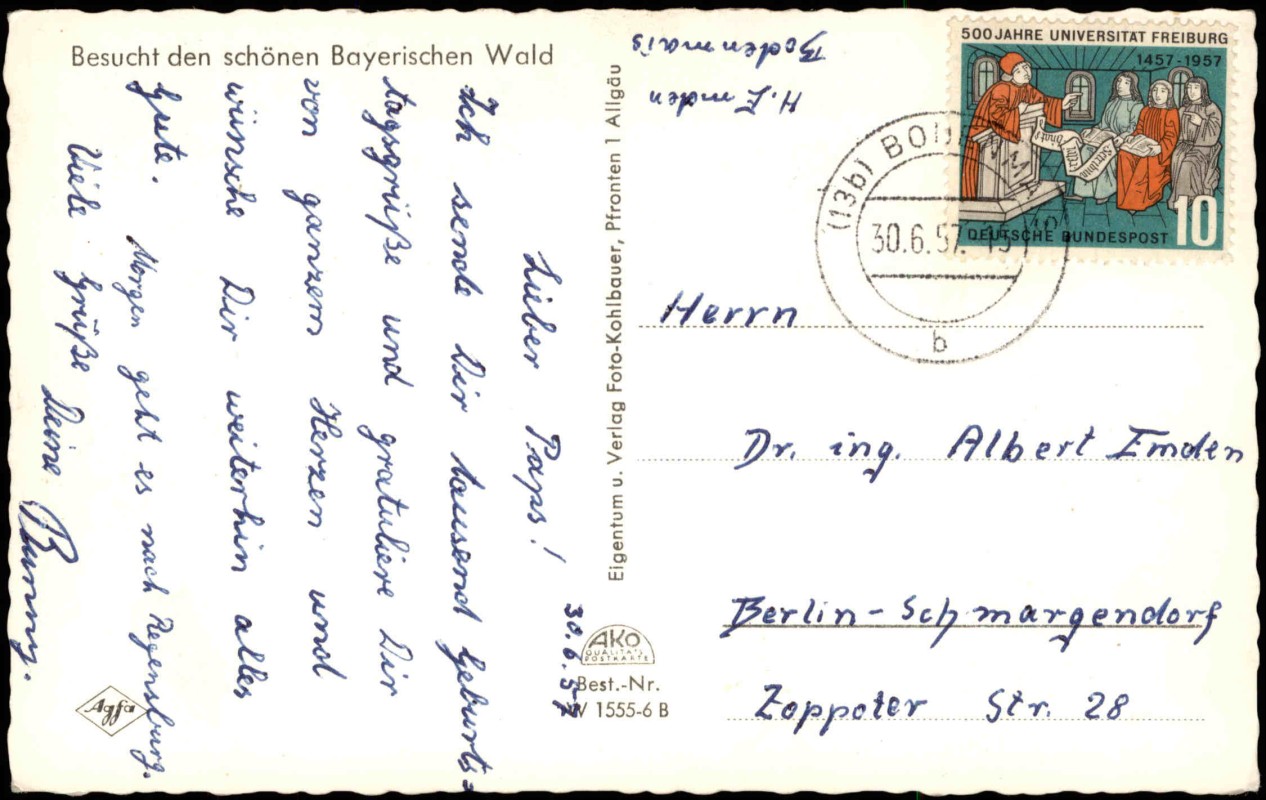 Besucht den schönen Bayerischen Wald
30.6.57
Lieber Paps!
Ich sende Dir tausend Geburts=
tagsgrüße und gratuliere Dir
von ganzem Herzen und
wünsche Dir weiterhin alles
Gute.
Morgen geht es nach Regensburg.
Viele Grüße Deine
Bunny.
Agfa
Eigentum u. Verlag Foto-Kohlbauer, Pfronten 1 Allgäu
AKO
QUALITÄTS
POSTKARTE
Best.-Nr.
W 1555-6 B
H. Emden
Bodenmais
500 JAHRE UNIVERSITÄT FREIBURG
1457-1957
10
DEUTSCHE BUNDESPOST
(13b) BODENMAIS
30.6.57.
b
Herrn
Dr. ing. Albert Emden
Berlin-Schmargendorf
Zoppoter Str. 28